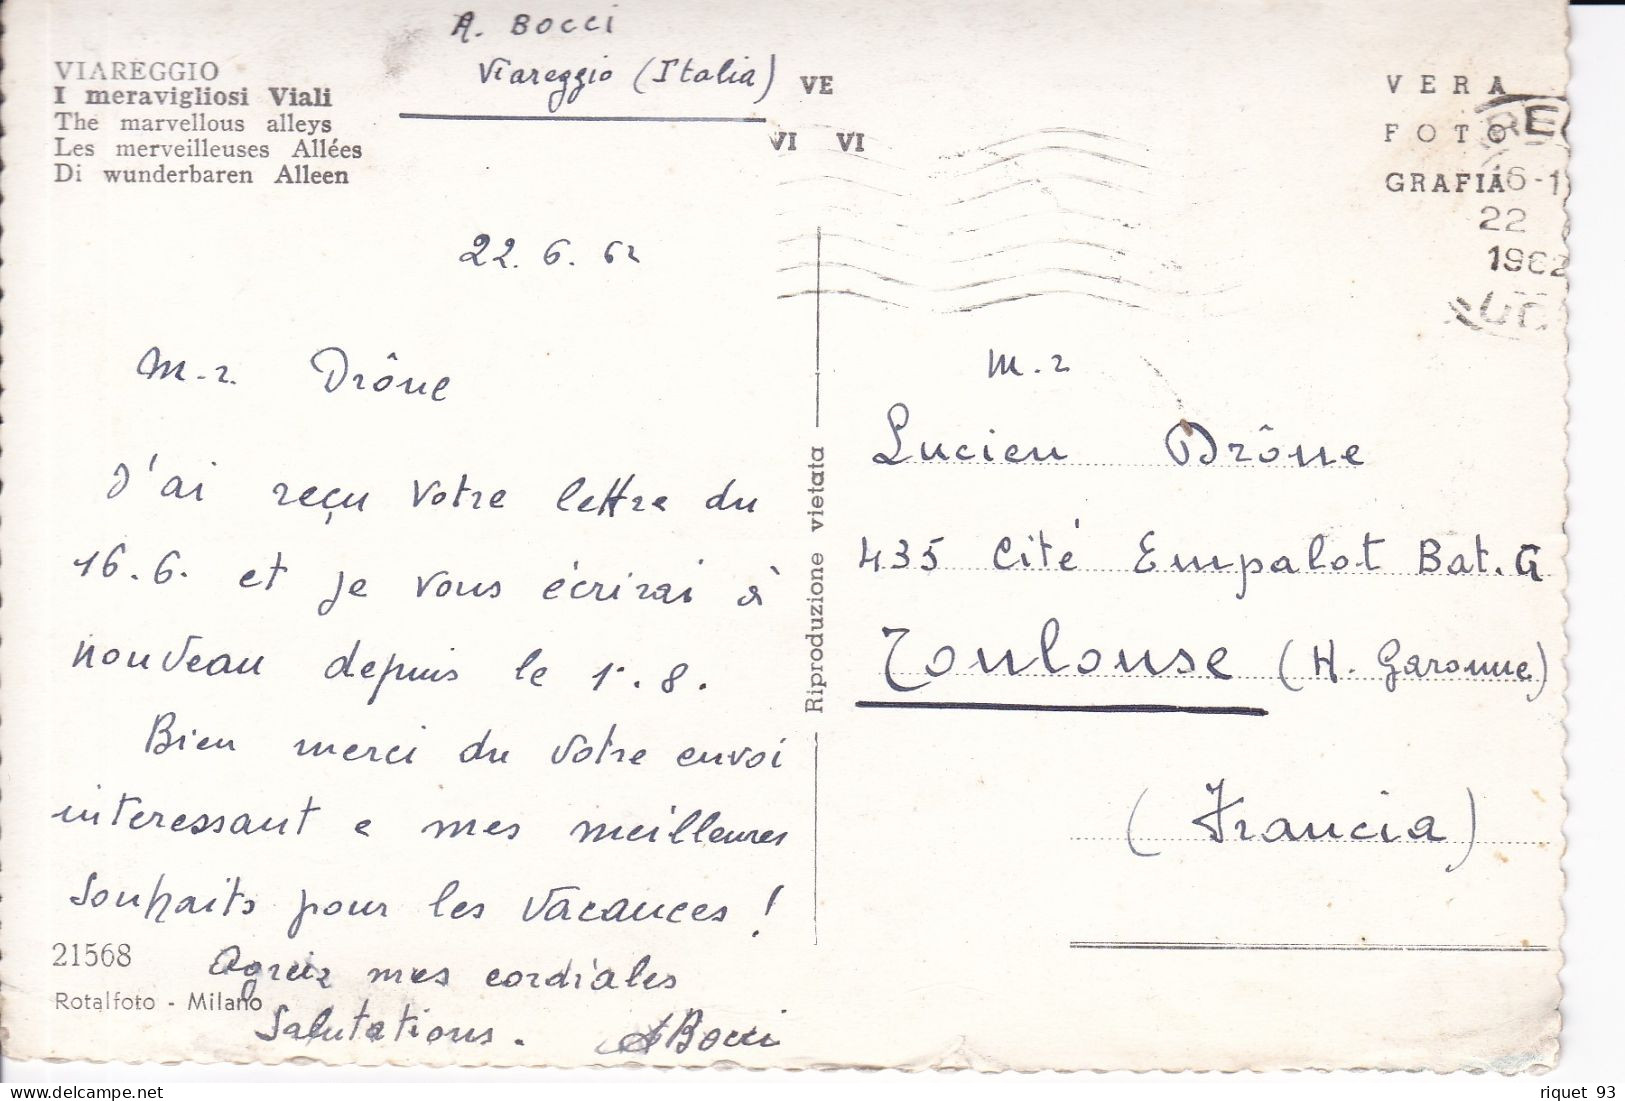 A. BOCCI
Viareggio (Italia)
VIAREGGIO
I meravigliosi Viali
The marvellous alleys
Les merveilleuses Allées
Di wunderbaren Alleen
VE
VI VI
VERA
FOTO
GRAFIA
16-1
22
1962
22.6.62
M.r. Drône
J'ai reçu votre lettre du
16.6. et je vous écrirai à
nouveau depuis le 1.8.
Bien merci du votre envoi
interessant e mes meilleures
souhaits pour les vacances!
Agréez mes cordiales
Salutations. ABocci
21568
Rotalfoto - Milano
Riproduzione vietata
M.r
Lucien Drône
435 Cité Empalot Bat. G
Toulouse (H. Garonne)
(Francia)
riquet 93